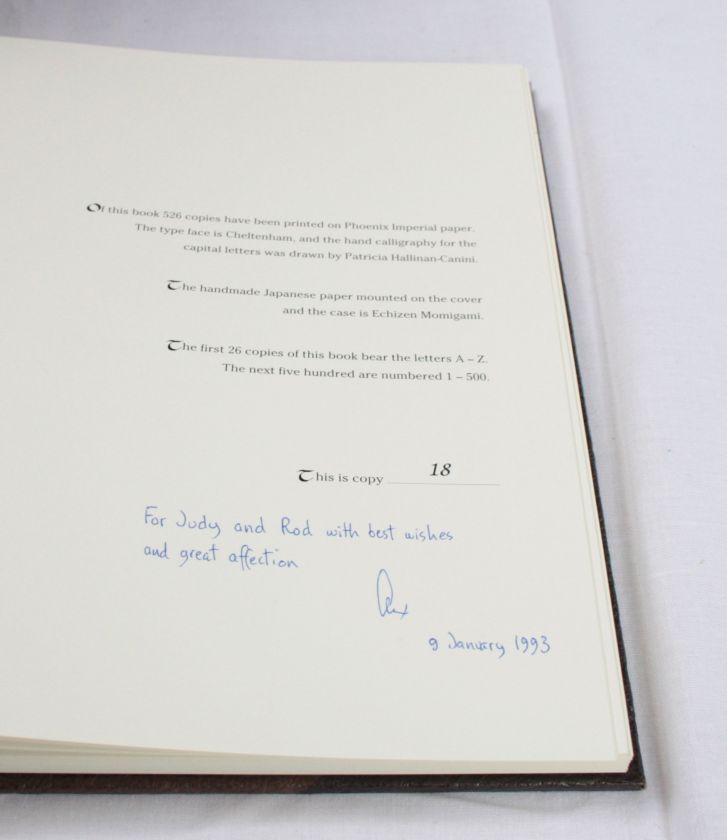 Of this book 526 copies have been printed on Phoenix Imperial paper.
The type face is Cheltenham, and the hand calligraphy for the
capital letters was drawn by Patricia Hallinan-Canini.
The handmade Japanese paper mounted on the cover
and the case is Echizen Momigami.
The first 26 copies of this book bear the letters A – Z.
The next five hundred are numbered 1 – 500.
This is copy 18
For Judy and Rod with best wishes
and great affection
9 January 1993